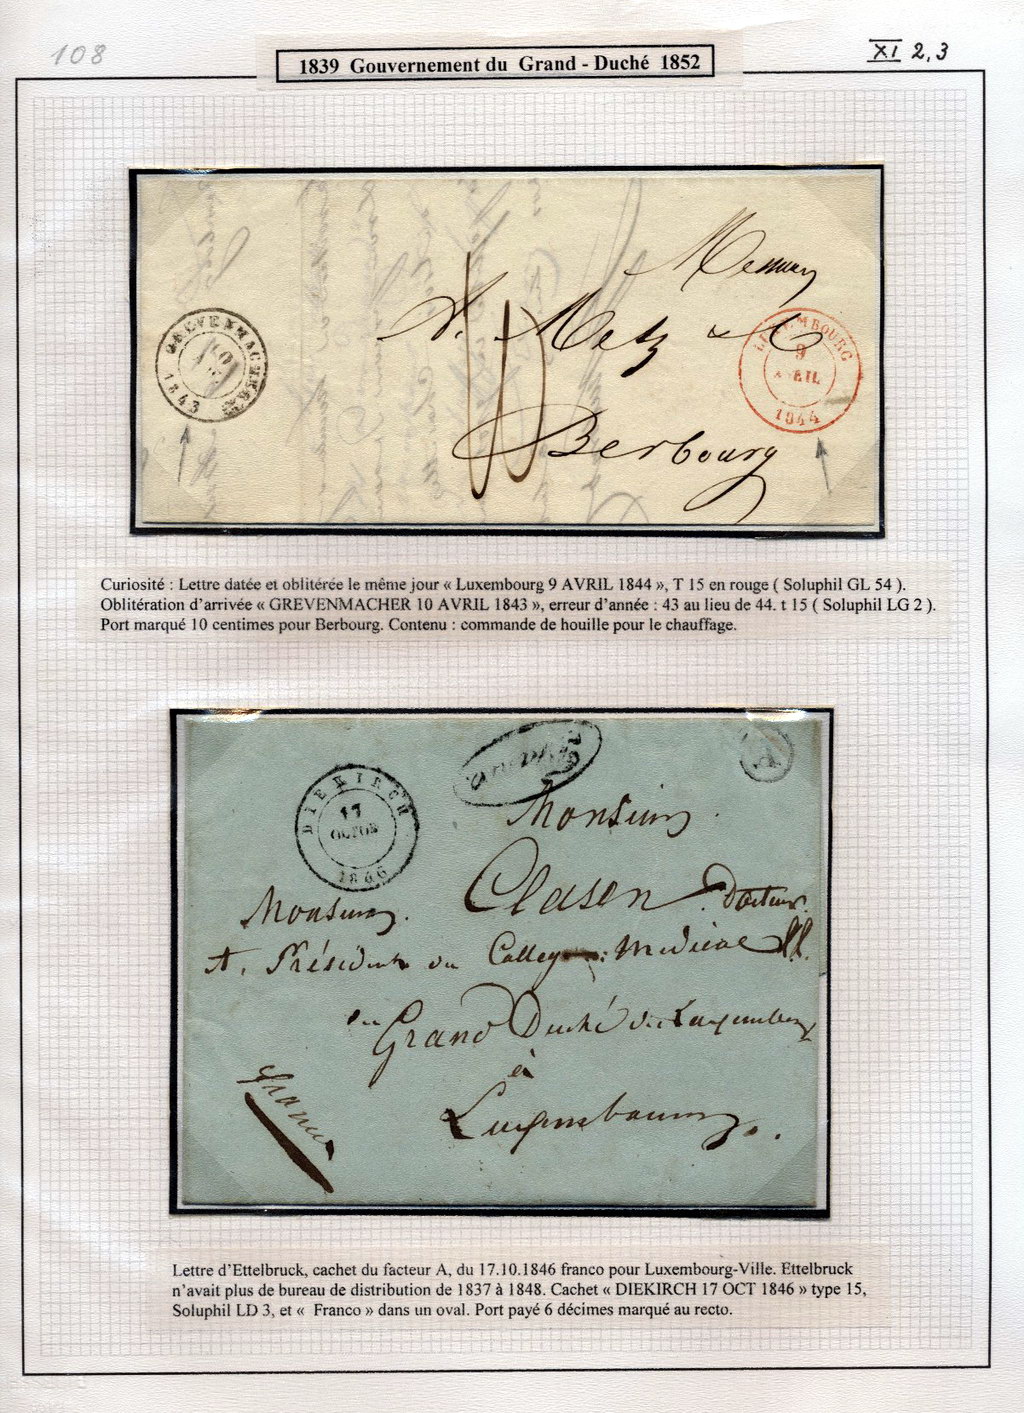 108
XI 2,3
1839 Gouvernement du Grand - Duché 1852
GREVENMACHER
10
1843
LUXEMBOURG
9
AVRIL
1844
10
A. Metz & C
Berbourg
Curiosité : Lettre datée et oblitérée le même jour « Luxembourg 9 AVRIL 1844 », T 15 en rouge ( Soluphil GL 54 ).
Oblitération d’arrivée « GREVENMACHER 10 AVRIL 1843 », erreur d’année : 43 au lieu de 44. t 15 ( Soluphil LG 2 ).
Port marqué 10 centimes pour Berbourg. Contenu : commande de houille pour le chauffage.
DIEKIRCH
17
OCTOB
1846
A
Monsieur
Clasen Docteur
Monsieur
Président du College Medical
Grand Duché de Luxembourg
à
Luxembourg
franco
Lettre d’Ettelbruck, cachet du facteur A, du 17.10.1846 franco pour Luxembourg-Ville. Ettelbruck
n’avait plus de bureau de distribution de 1837 à 1848. Cachet « DIEKIRCH 17 OCT 1846 » type 15,
Soluphil LD 3, et « Franco » dans un oval. Port payé 6 décimes marqué au recto.